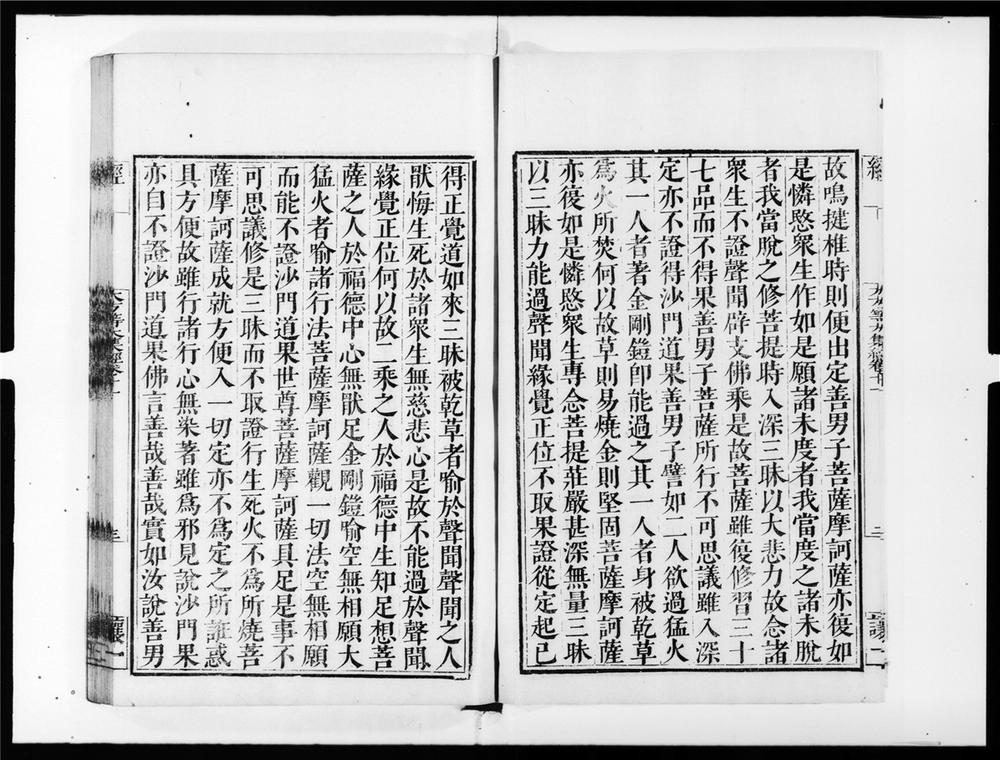 故鳴揵椎時則便出定善男子菩薩摩訶薩亦復如
是憐愍衆生作如是願諸未度者我當度之諸未脫
者我當脫之修菩提時入深三昧以大悲力故念諸
衆生不證聲聞辟支佛乘是故菩薩雖復修習三十
七品而不得果善男子菩薩所行不可思議雖入深
定亦不證得沙門道果善男子譬如二人欲過猛火
其一人者著金剛鎧卽能過之其一人者身被乾草
爲火所焚何以故草則易燒金則堅固菩薩摩訶薩
亦復如是憐愍衆生專念菩提莊嚴甚深無量三昧
以三昧力能過聲聞緣覺正位不取果證從定起已
得正覺道如來三昧被乾草者喻於聲聞聲聞之人
猒悔生死於諸衆生無慈悲心是故不能過於聲聞
緣覺正位何以故二乘之人於福德中生知足想菩
薩之人於福德中心無猒足金剛鎧喻空無相願大
猛火者喻諸行法菩薩摩訶薩觀一切法空無相願
而能不證沙門道果世尊菩薩摩訶薩具足是事不
可思議修是三昧而不取證行生死火不爲所燒菩
薩摩訶薩成就方便入一切定亦不爲定之所誑惑
具方便故雖行諸行心無染著雖爲邪見說沙門果
亦自不證沙門道果佛言善哉善哉實如汝說善男